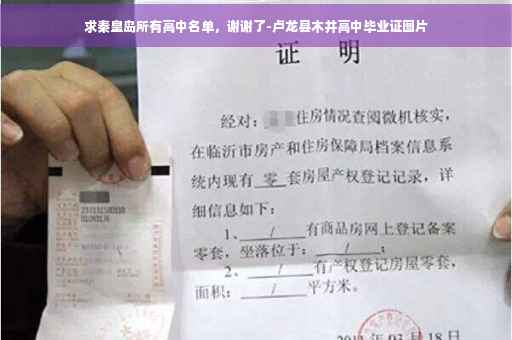 求秦皇岛所有高中名单，谢谢了-卢龙县木井高中毕业证图片
证 明
经对：住房情况查阅微机核实，
在临沂市房产和住房保障局档案信息系
统内现有 零 套房屋产权登记记录，详
细信息如下：
1、 / 有商品房网上登记备案
零套，坐落位于： / ；
2、 / 有产权登记房屋零套，
面积： / 平方米。
03 月 18 日